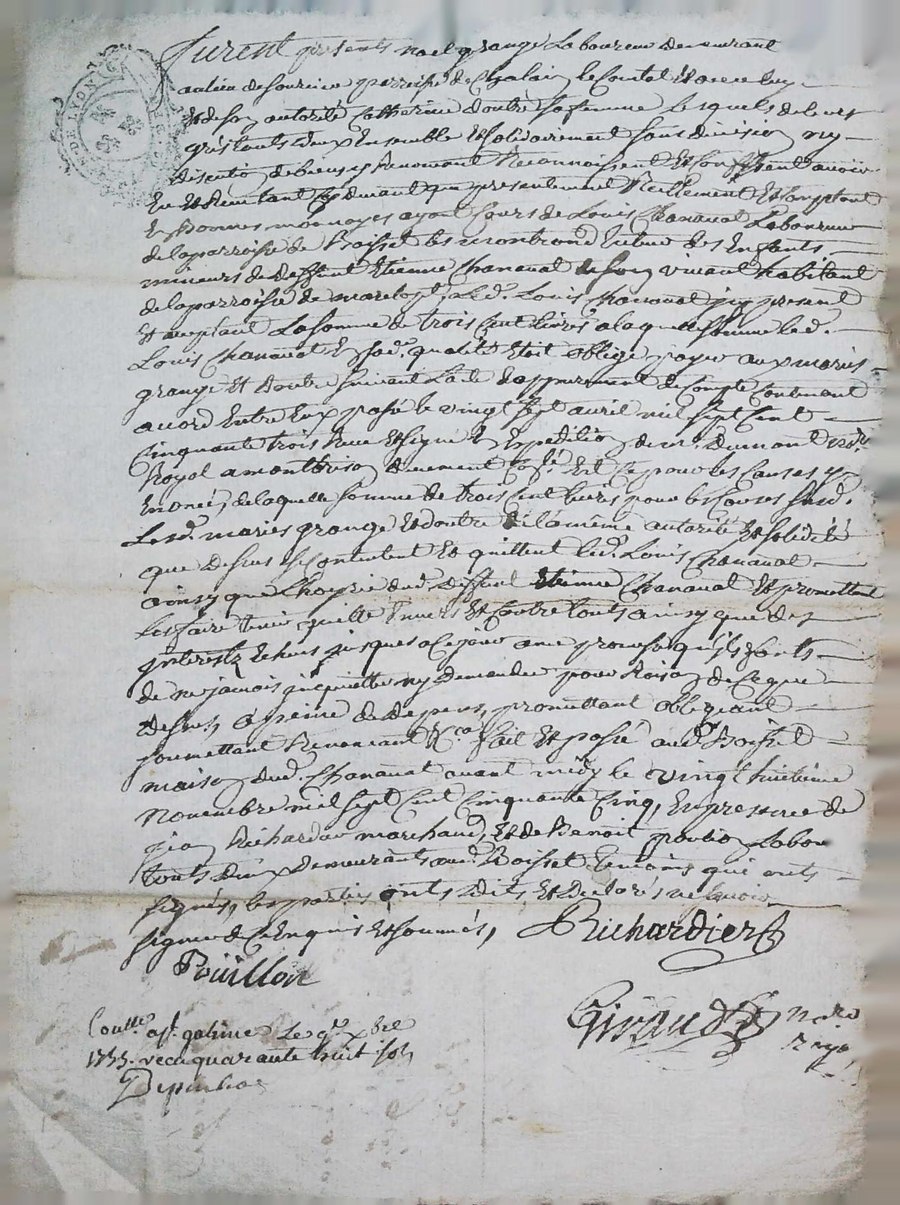 DE LYON
Furent présents noel grange Laboureur demeurant
au lieu de parroisse de Chalain le Comtal Et avec luy
Et de son autorité Catherine doutre sa femme Lesquels de leurs
grés touts deux Ensemble Et solidairement sans division ny
discution de biens y Renonçant Reconnoissent Et Confessent avoir
Eu Et Reçu tant Cydevant que presentement Reellement Et Comptant
En Bonnes monnoyes ayant Cours de Louis Chanavat Laboureur
de la parroisse de Boisset les montrond tuteur des Enfants
mineurs de deffunt Etienne Chanavat de son vivant habitant
de la parroisse de Led. Louis Chanavat icy present
Et acceptant La somme de trois Cent livres a laquelle somme led.
Louis Chanavat En sad. qualité Etoit obligé payer aux mariés
grange Et doutre suivant L'acte d'appurement de Compte Contenant
acord Entre Eux passé le vingt sept avril mil sept Cent
Cinquante trois Reçu Et signé En Expedition de mr. Dumont
Royal a montbrison duement Et Ce pour les Causes y
Enoncés, de laquelle somme de trois Cent livres pour les Causes susd.
Lesd. mariés grange Et doutre de la même autorité Et solidité
que dessus se Contentent Et quittent led. Louis Chanavat
ainsy que L'hoyrie dud. deffunt Etienne Chanavat Et promettent
Les faire tenir quitte Envers Et Contre touts ainsy que des
interests Echus jusques a Ce jour avec promesse qu'ils font
de ne jamais inquietter ny demander pour Raison de Ce que
dessus, a peine de depens, promettant obligeant
soumettant Renonçant &ca fait Et passé aud. Boisset
maison dud. Chanavat avant midy le vingt huitieme
novembre mil sept Cent Cinquante Cinq, En presence de
Richardier marchand, Et de Benoit Labour
touts deux demeurants aud. Boisset temoins qui ont
signés, les parties ont dits Et declarés ne sçavoir
signer de Ce Enquis Et sommés, Richardier
Pouillon
Giraud no.re
royal
Coutlle a st. galmier Le 9
1755. Reçu quarante huit sols